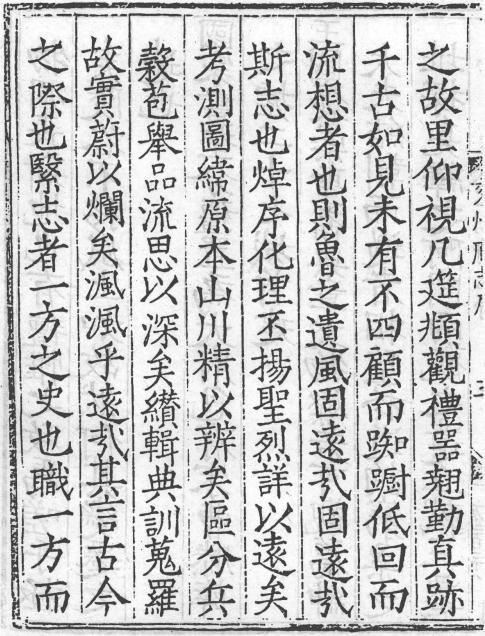 之故里仰視几筵頫觀禮器翹勤真跡
千古如見未有不四顧而踟躕低回而
流想者也則魯之遺風固遠哉固遠哉
斯志也焯序化理丕揚聖烈詳以遠矣
考測圖緯原本山川精以辨矣區分兵
穀苞舉品流思以深矣纉輯典訓蒐羅
故實蔚以爛矣渢渢乎遠哉其言古今
之際也繄志者一方之史也職一方而